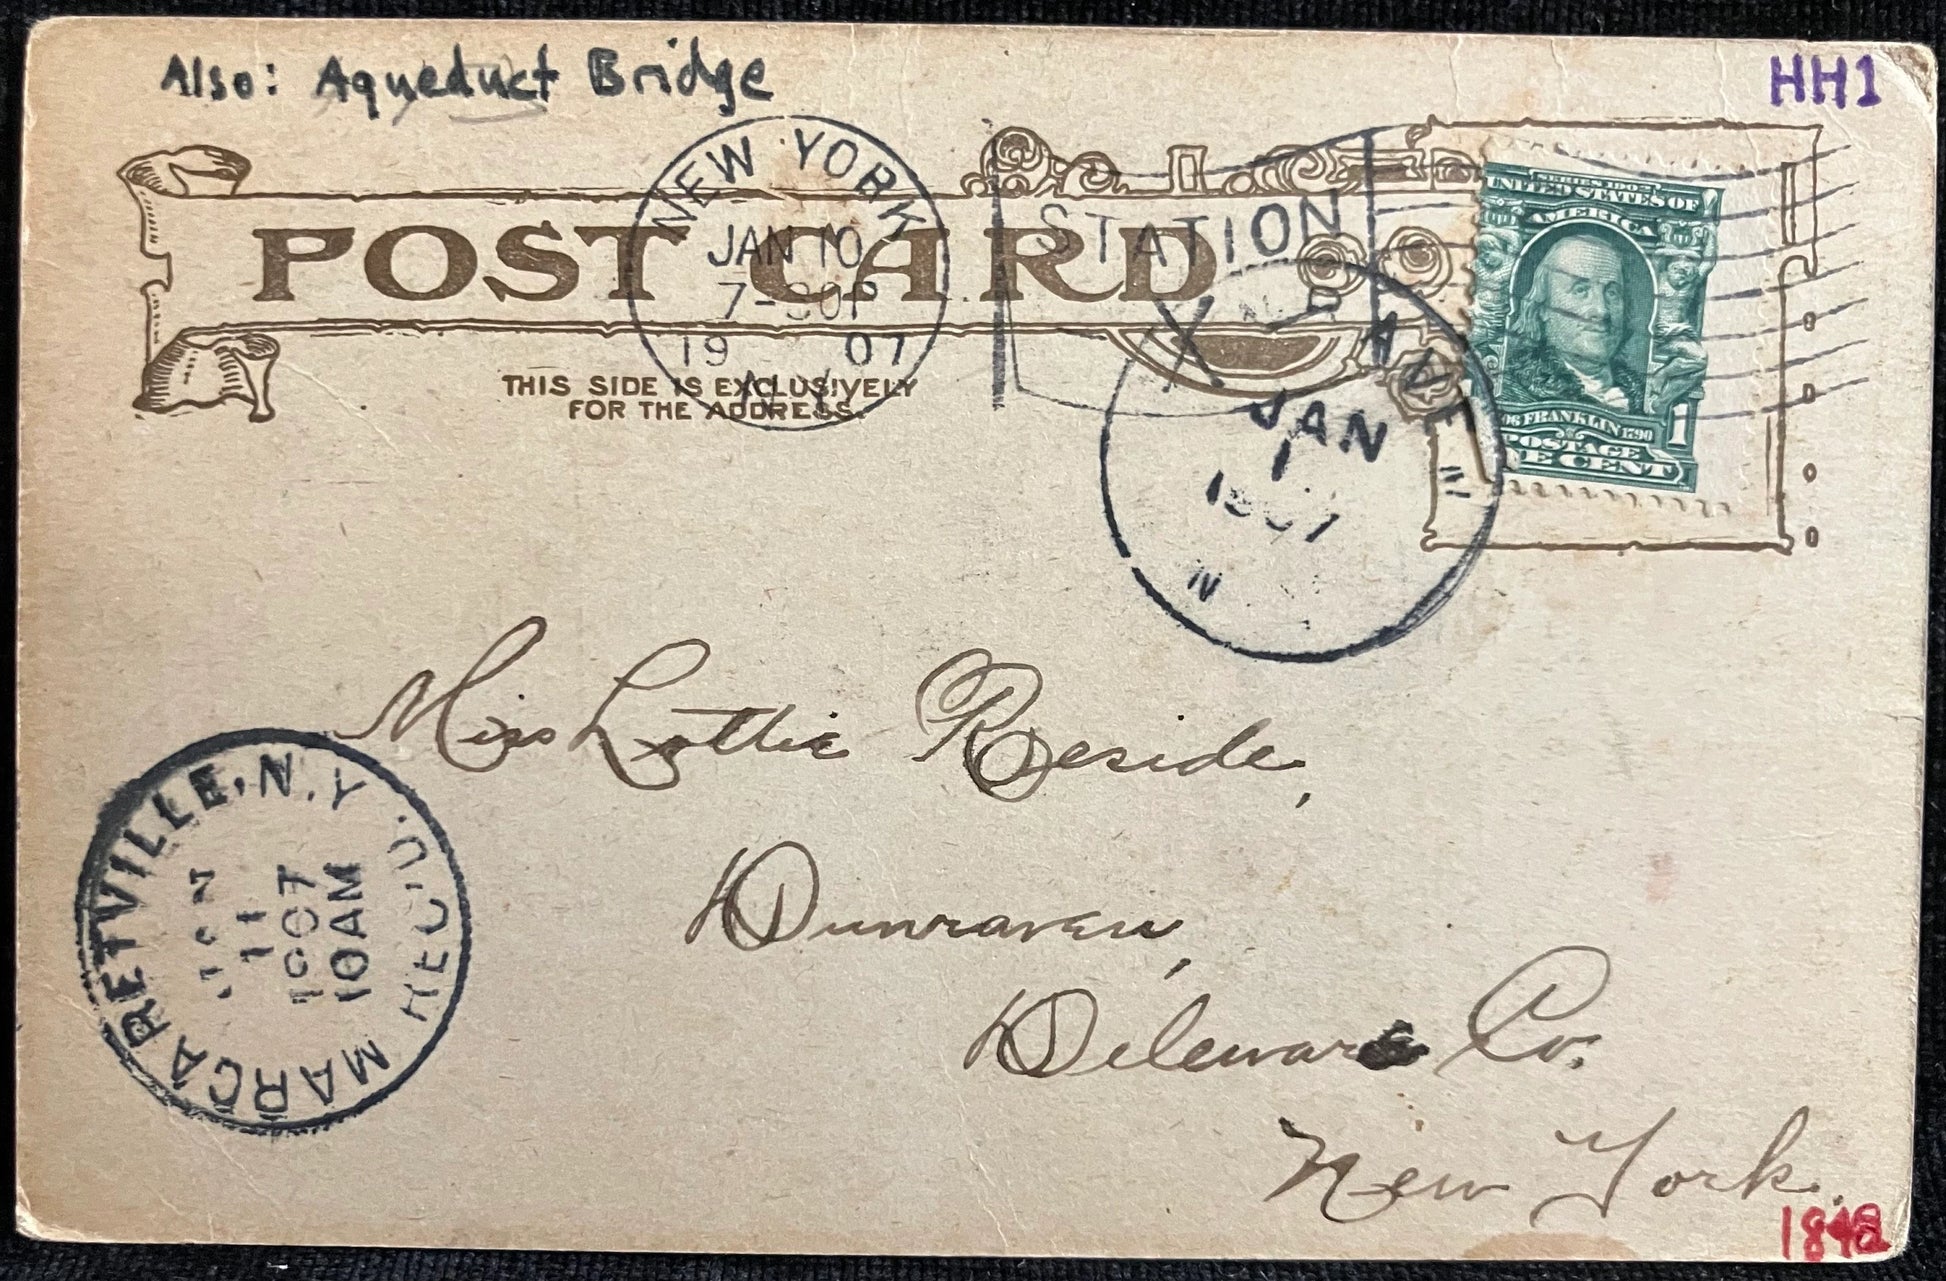 Also: Aqueduct Bridge
HH1
POST CARD
THIS SIDE IS EXCLUSIVELY
FOR THE ADDRESS.
NEW YORK
JAN 10
7-30P
19 07
N.Y.
STATION
SERIES 1902
UNITED STATES OF
AMERICA
FRANKLIN 1790
POSTAGE
ONE CENT
1
JAN
1907
N
Miss Lottie Reside,
Dunraven,
Delaware Co.
New York.
MARGARETVILLE, N.Y.
JAN
11
1907
10AM
REC'D.